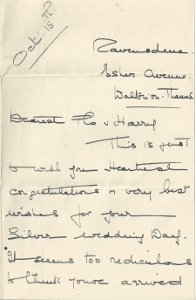 Oct. 15th
Ravensdene.
Esher Avenue.
Walton-on-Thames
Dearest Flo & Harry
This is just
to wish you Heartiest
congratulations & very best
wishes for your
Silver wedding Day.
It seems too rediculous
to think youve arrived